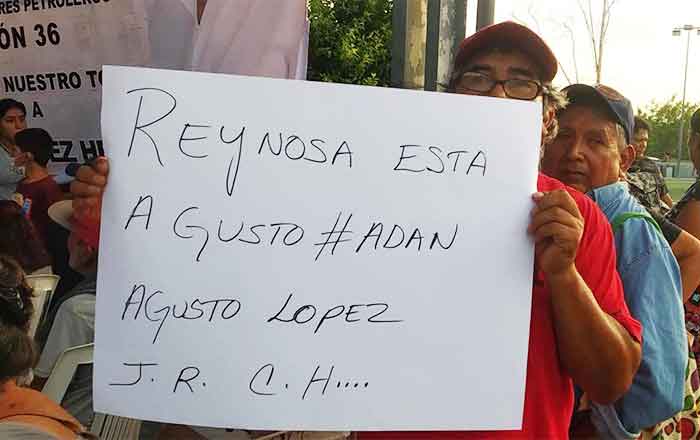 RES PETROLEROS
ÓN 36
NUESTRO TO
A
EZ H
REYNOSA ESTA
A GUSTO #ADAN
AGUSTO LOPEZ
J.R. C.H....